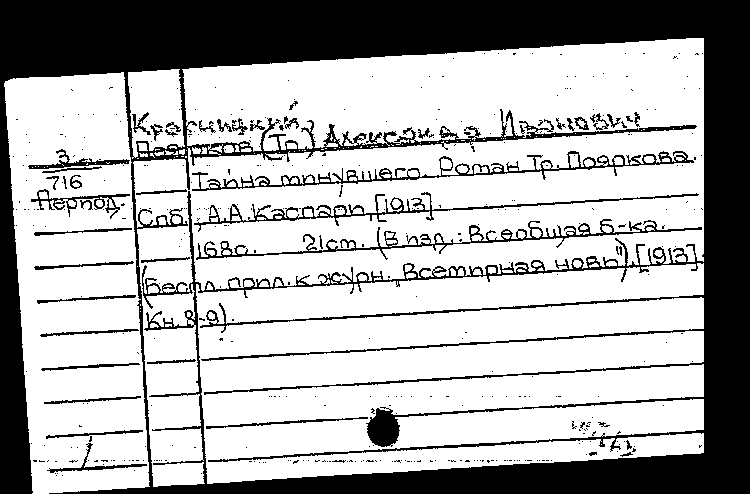 Красницкий,
Поярков (Тр.) Александр Иванович
З
716
Период.
Тайна минувшего. Роман Тр. Пояркова.
Спб., А.А.Каспари, [1913].
168с. 21см. (В изд.: Всеобщая б-ка.
(Беспл. прил. к журн. „Всемирная новь"). [1913].
Кн. 8-9).